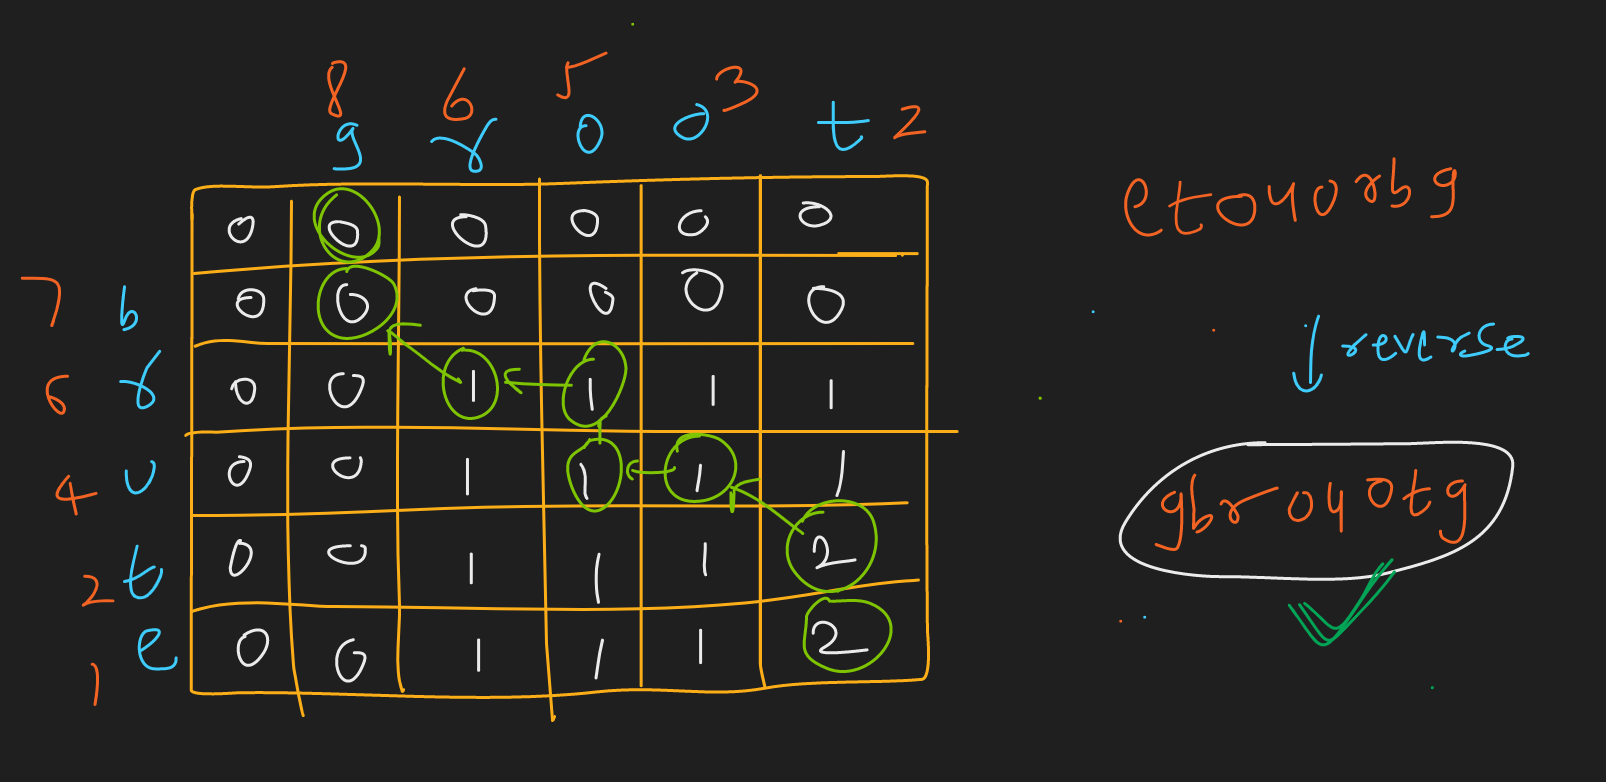 8 6 5 3
g r o o t 2
0 0 0 0 0 0
7 b 0 0 0 0 0 0
6 r 0 0 1 1 1 1
4 u 0 0 1 1 1 1
2 t 0 0 1 1 1 2
1 e 0 0 1 1 1 2
etouorbg
reverse
gbrouotg